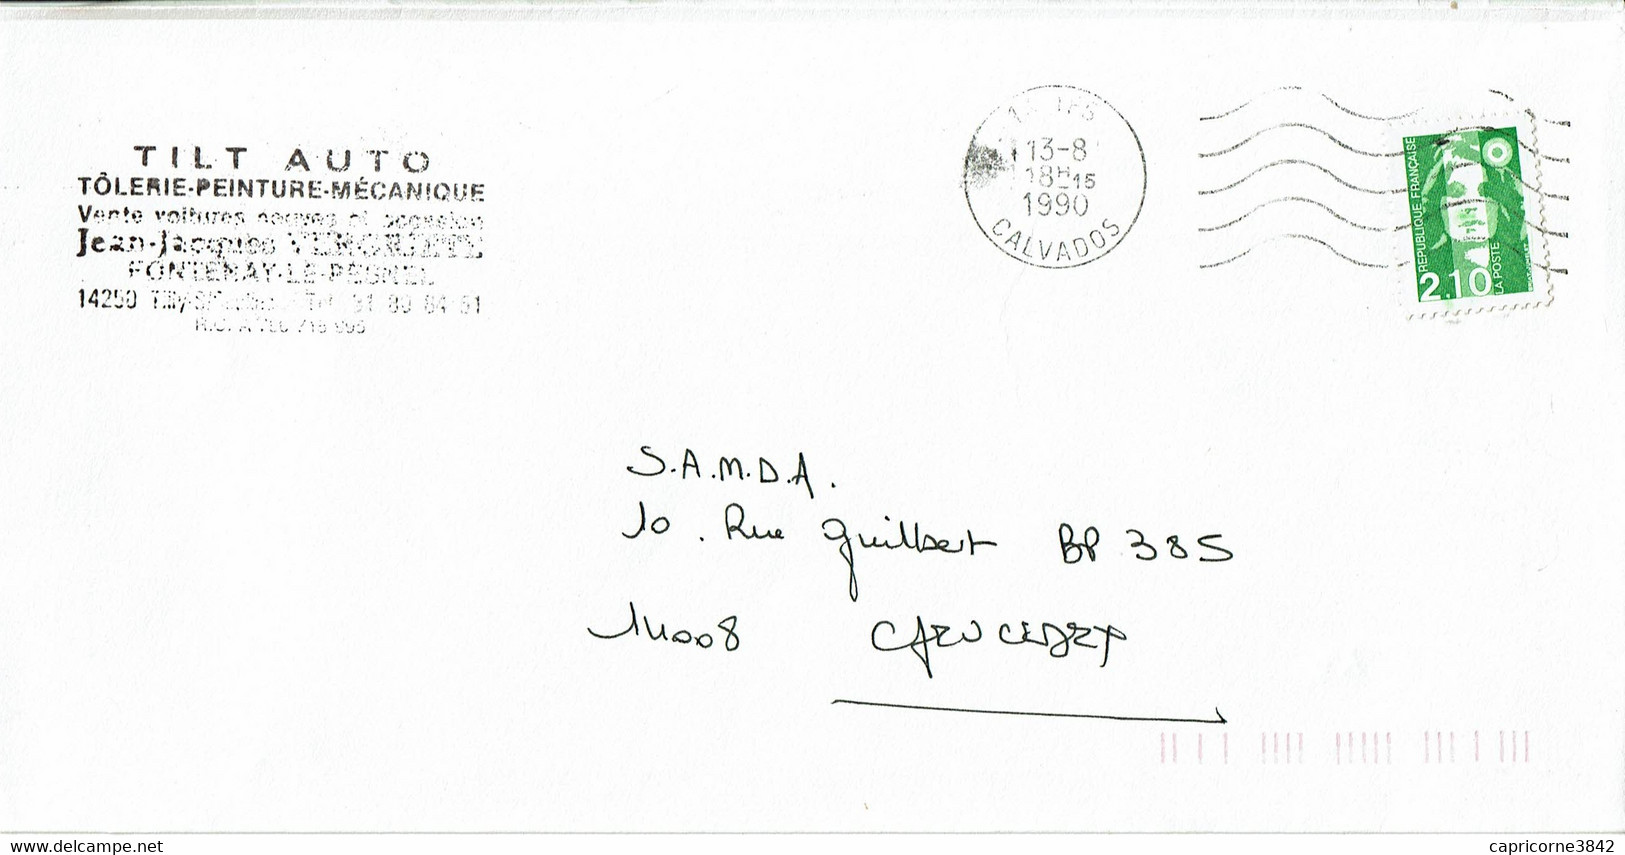 TILT AUTO
TÔLERIE-PEINTURE-MÉCANIQUE
Vente voitures neuves et occasion
Jean-Jacques
FONTENAY-LE-PESNEL
14250 Tilly Tél. 31 80 84 51
R.C.
14 IFS
13-8
18H15
1990
CALVADOS
REPUBLIQUE FRANÇAISE
2,10
LA POSTE
S.A.M.D.A.
10. Rue Guilbert BP 385
14008 CAEN CEDEX
delcampe.net
capricorne3842